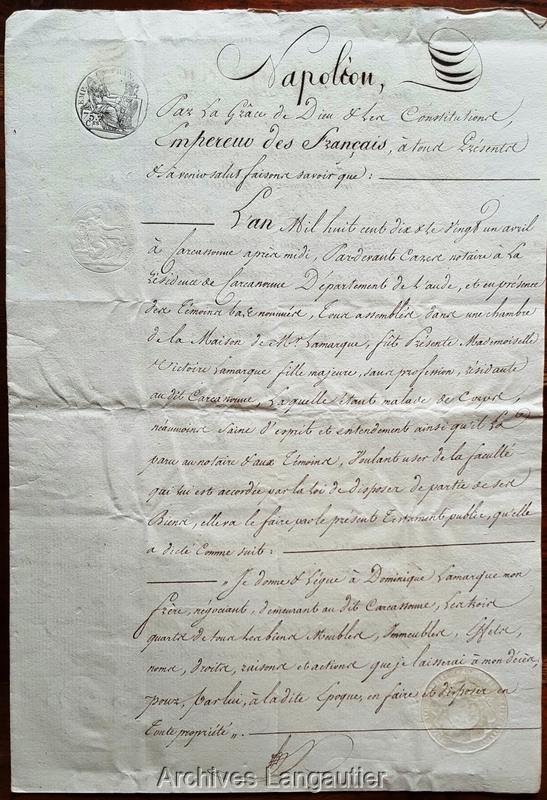 Napoléon,
Par La Grâce de Dieu & Les Constitutions,
Empereur des Français, à tous Présents
& à venir salut faisons savoir que :
L'an Mil huit cent dix & le Vingt un avril
à Carcassonne après midi, Pardevant Cazes notaire à La
résidence de Carcassonne Département de l'aude, et en présence
des Témoins bas nommés, Tous assemblés dans une chambre
de la Maison de Mr. Lamarque, fut Présente Mademoiselle
Victoire Lamarque fille majeure, sans profession, résidante
au dit Carcassonne, Laquelle étant malade de Corps,
néanmoins Saine d'esprit et entendement ainsi qu'il a
paru au notaire & aux Témoins, Voulant user de la faculté
qui lui est accordée par la Loi de disposer de partie de ses
Biens, elle va le faire par le présent Testament public, qu'elle
a dicté Comme suit :
„ Je donne & Lègue à Dominique Lamarque mon
frère, négociant, demeurant au dit Carcassonne, Les trois
quarts de tous Les biens Meubles, Immeubles, Effets,
noms, droits, raisons et actions que je laisserai à mon décès,
pour, par lui, à la dite Epoque, en faire et disposer en
Toute propriété „.
Archives Langautier